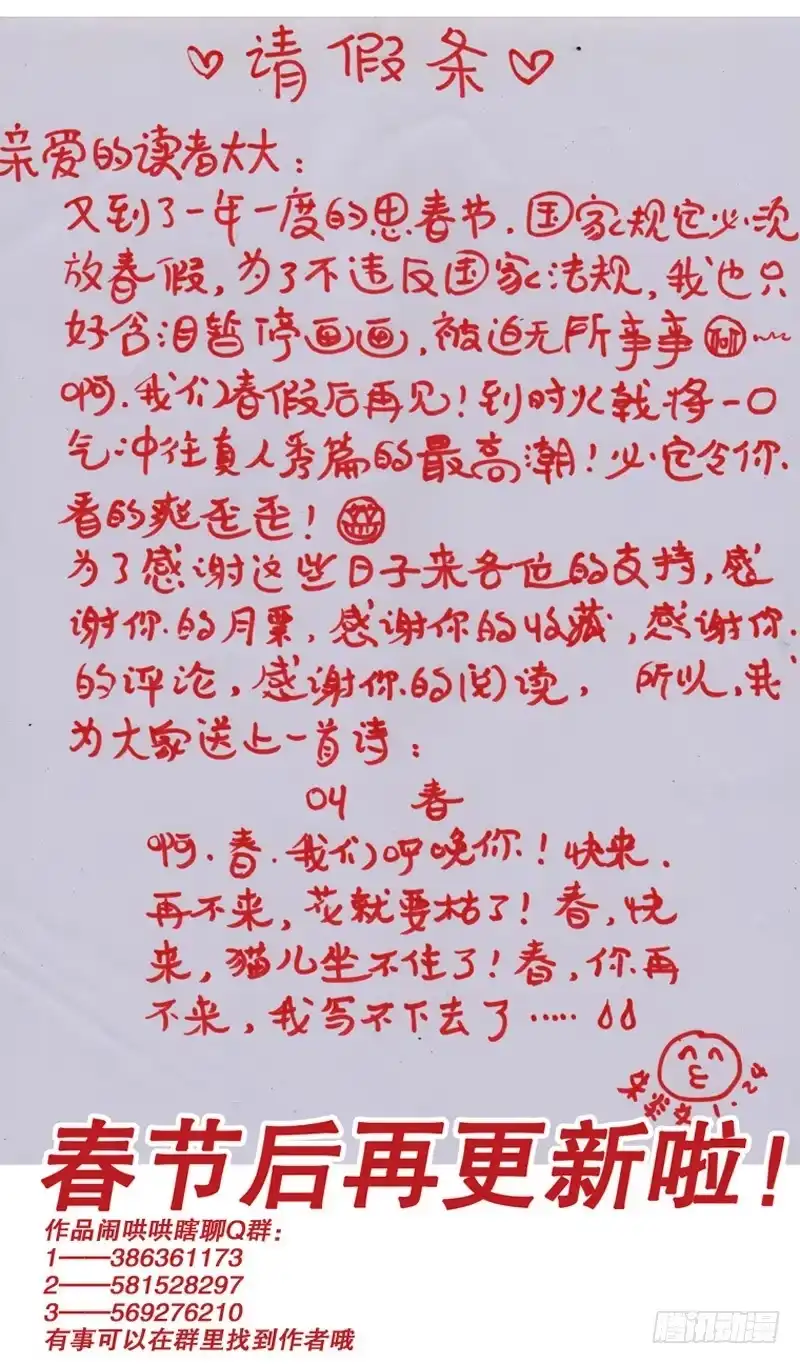 ♡请假条♡
亲爱的读者大大：
又到了一年一度的思春节，国家规定必须
放春假，为了不违反国家法规，我也只
好含泪暂停画画，被迫无所事事
啊，我们春假后再见！到时火戟将一口
气冲往真人秀篇的最高潮！必定令你
看的爽歪歪！
为了感谢这些日子来各位的支持，感
谢你的月票，感谢你的收藏，感谢你
的评论，感谢你的阅读， 所以，我
为大家送上一首诗：
04 春
啊，春，我们呼晚你！快来，
再不来，花就要枯了！春，快
来，猫儿坐不住了！春，你再
不来，我写不下去了……
1.24
春节后再更新啦！
作品闹哄哄瞎聊Q群：
1——386361173
2——581528297
3——569276210
有事可以在群里找到作者哦
腾讯动漫